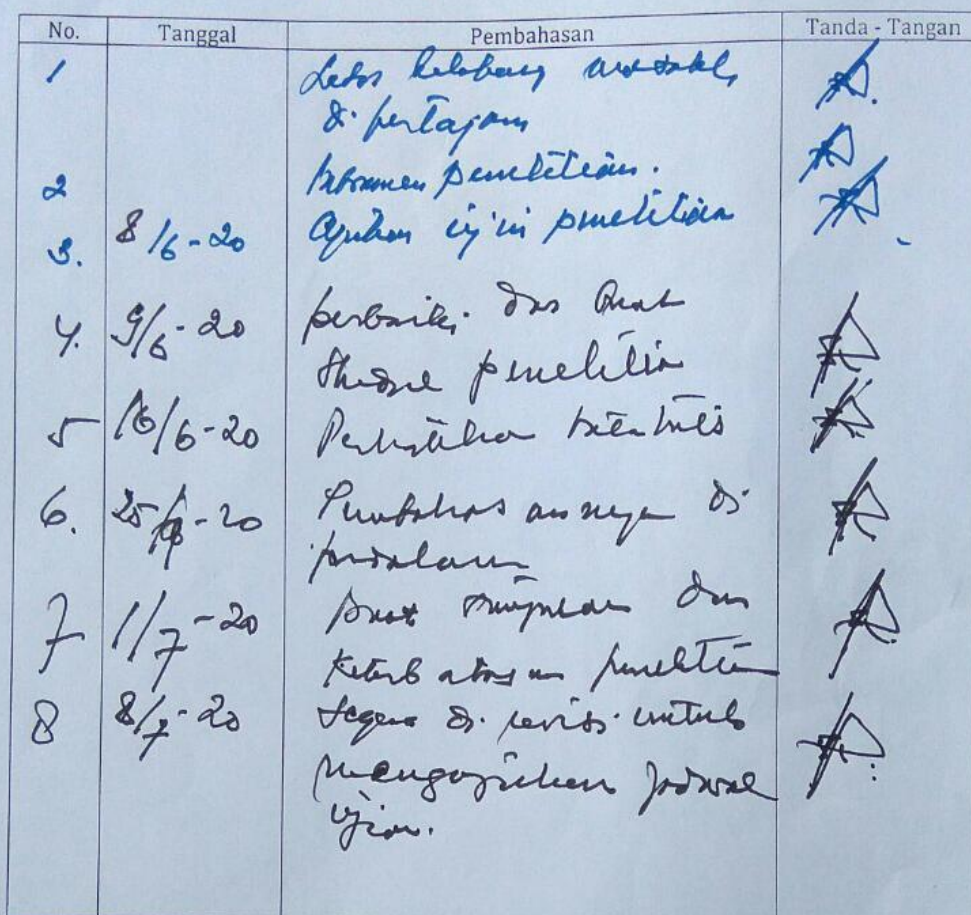 No. Tanggal Pembahasan Tanda - Tangan
1 Latar belakang masalah
di pertajam
2 Instrumen penelitian.
3. 8/6-20 Ajukan ijin penelitian
4. 9/6-20 perbaiki dan buat
penelitian
5 16/6-20 Perhatikan
6. 25/6-20 Pembahasannya di
perdalam
7 1/7-20 buat simpulan dan
keterbatasan penelitian
8 8/7-20 Segera di revisi untuk
mengajukan jadwal
ujian.